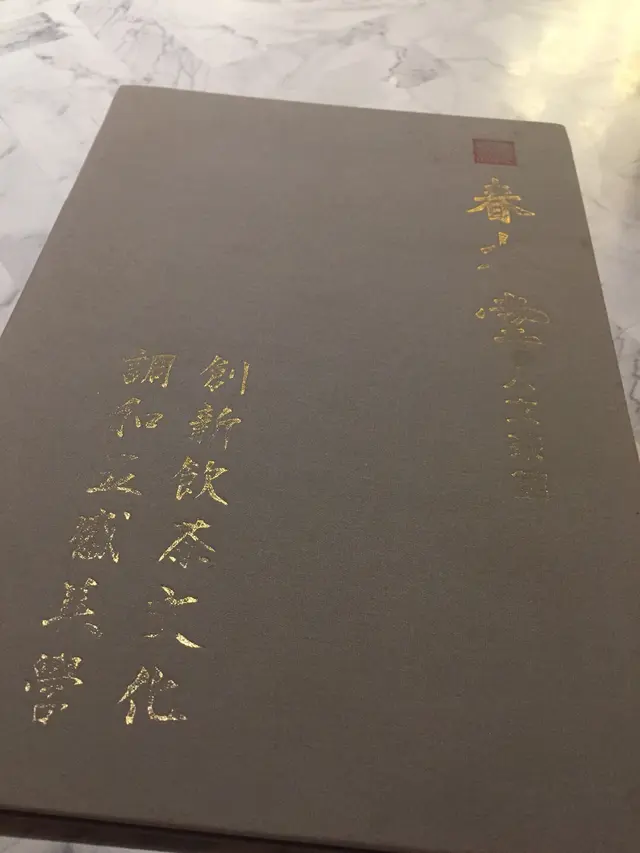 春水堂人文茶館
創新飲茶文化
調和五感美學